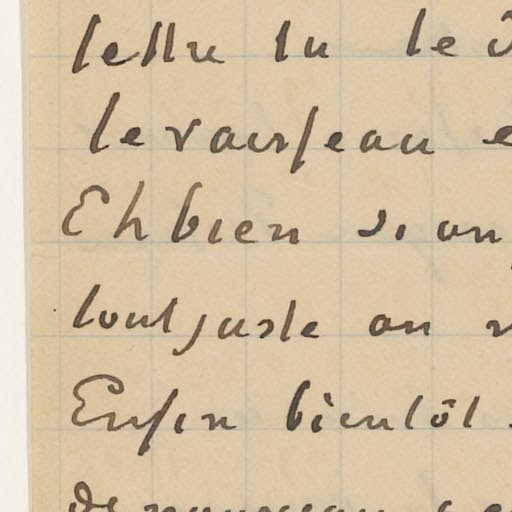 lettre tu le
le vaisseau
Eh bien si on
tout juste on
Enfin bientôt
de nouveau